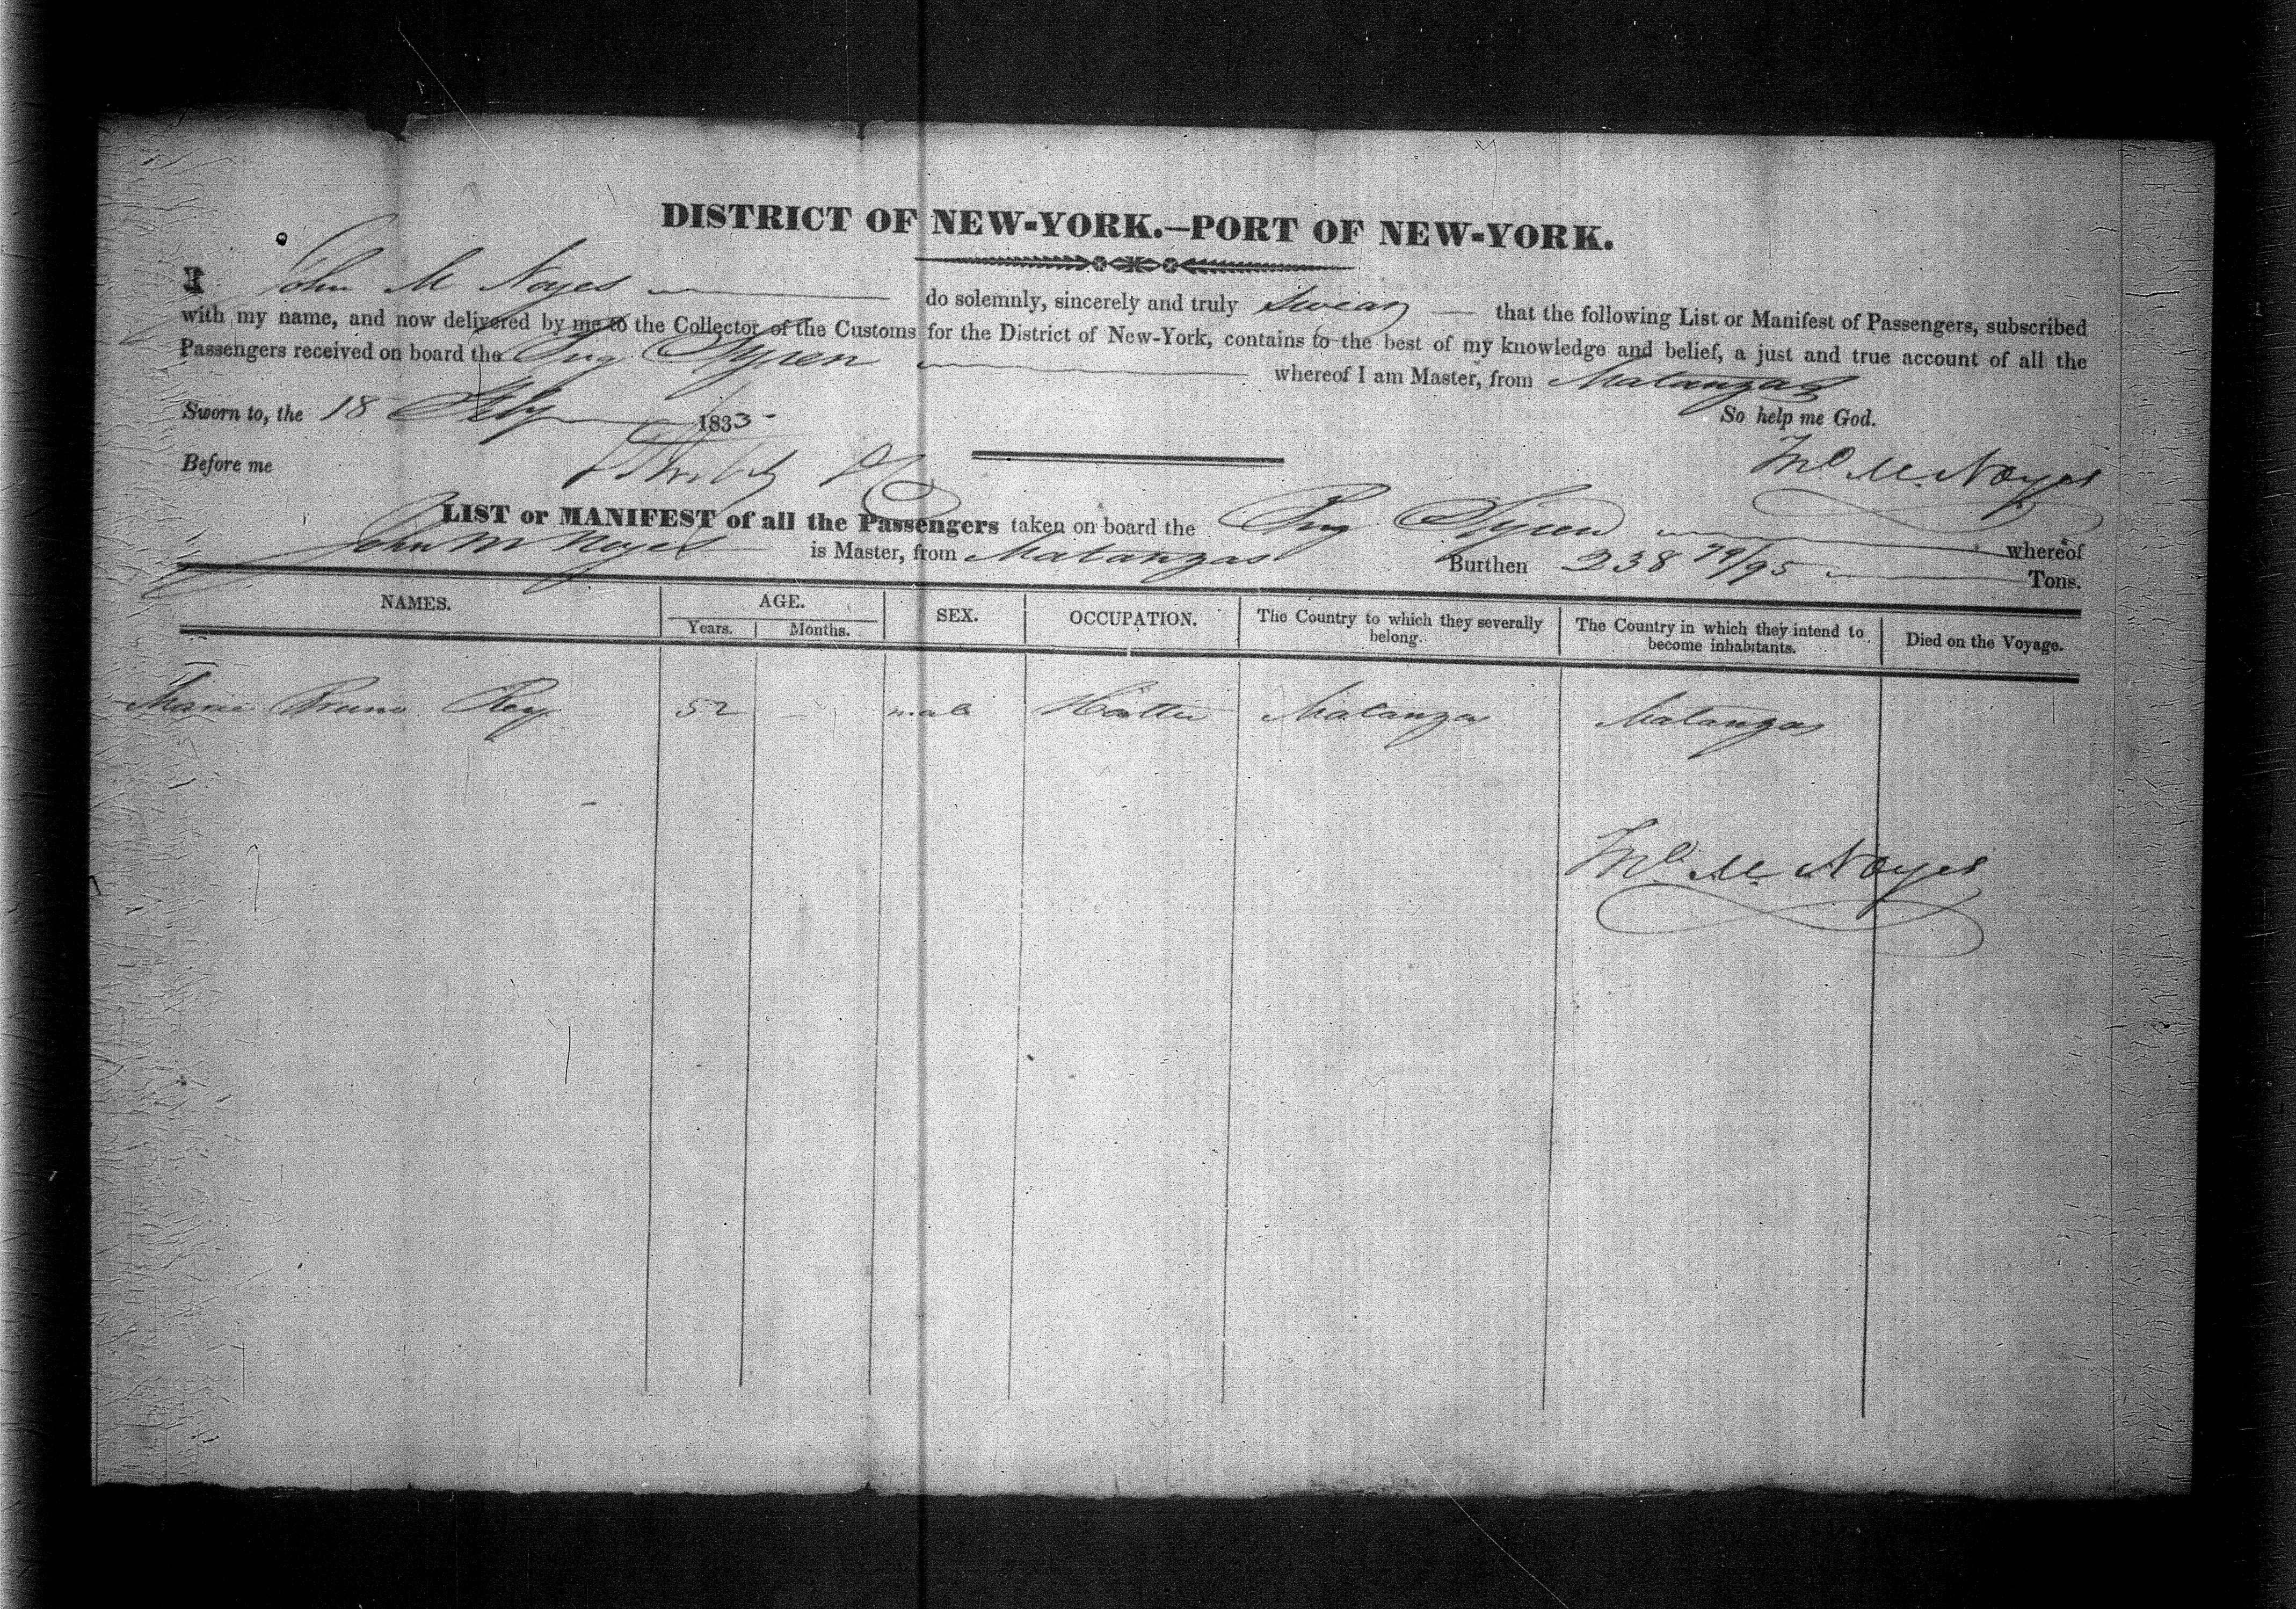 DISTRICT OF NEW-YORK.—PORT OF NEW-YORK.
I John M Noyes do solemnly, sincerely and truly swear that the following List or Manifest of Passengers, subscribed
with my name, and now delivered by me to the Collector of the Customs for the District of New-York, contains to the best of my knowledge and belief, a just and true account of all the
Passengers received on board the Brig Syren whereof I am Master, from Matanzas
Sworn to, the 18 Feby 1833 So help me God.
Before me Jno M. Noyes
LIST or MANIFEST of all the Passengers taken on board the Brig Syren whereof
John M Noyes is Master, from Matanzas Burthen 238 79/95 Tons.
NAMES. AGE. SEX. OCCUPATION. The Country to which they severally belong. The Country in which they intend to become inhabitants. Died on the Voyage.
Years. Months.
Bruno Rey 52 — male Hatter Matanzas Matanzas
Jno M. Noyes